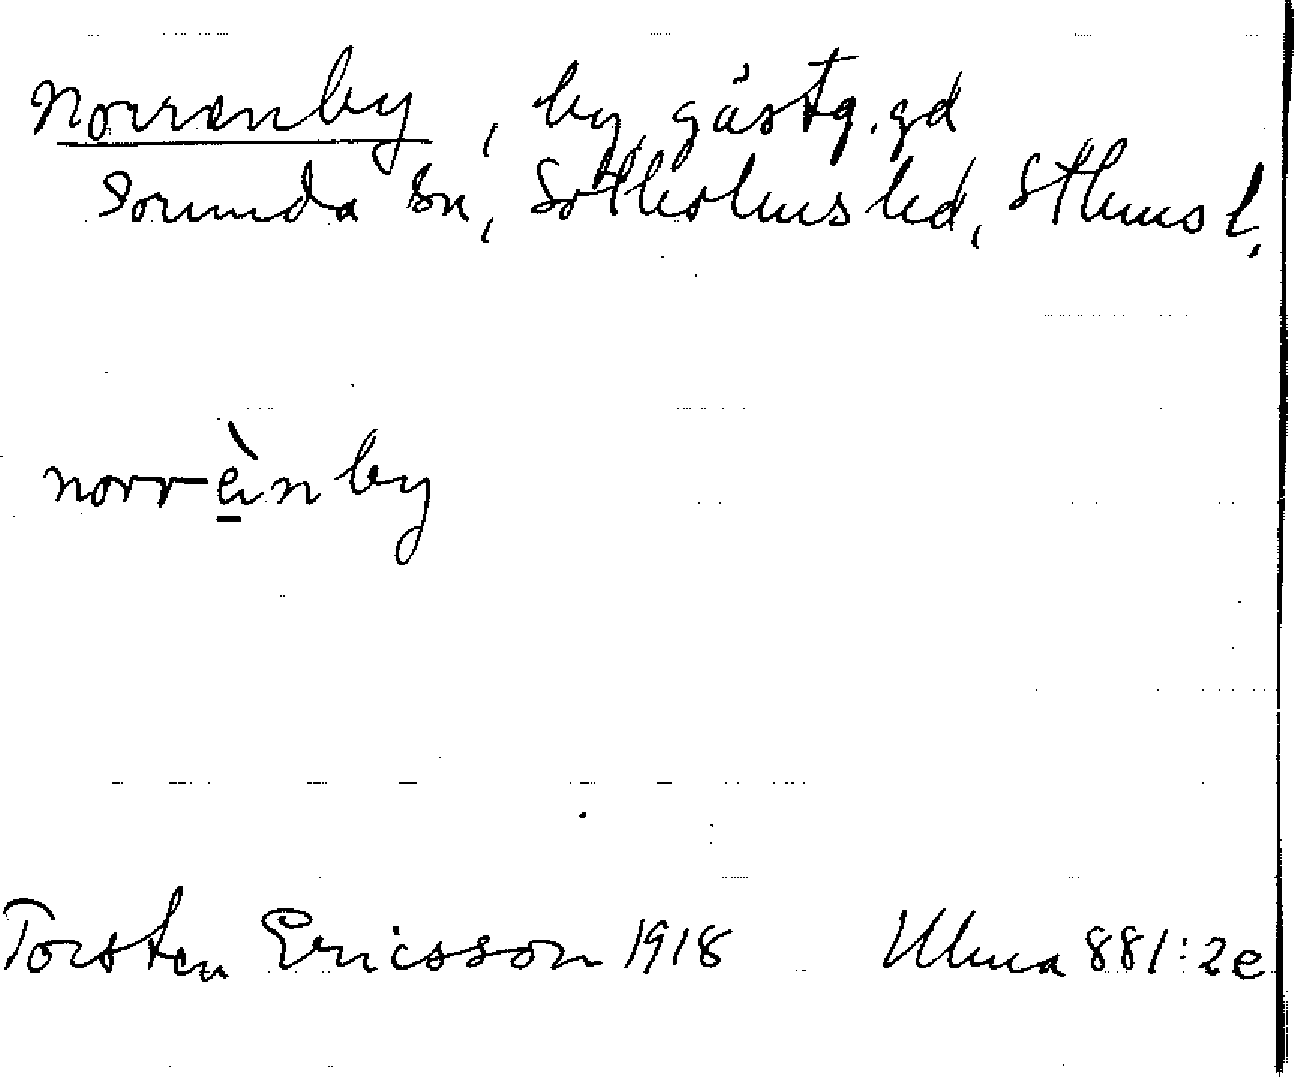 Norrenby, by, gästg.gd
Sorunda sn, Sotholms hd, Sthms l.
norrènby
Torsten Ericsson 1918 Ulma 881:2e